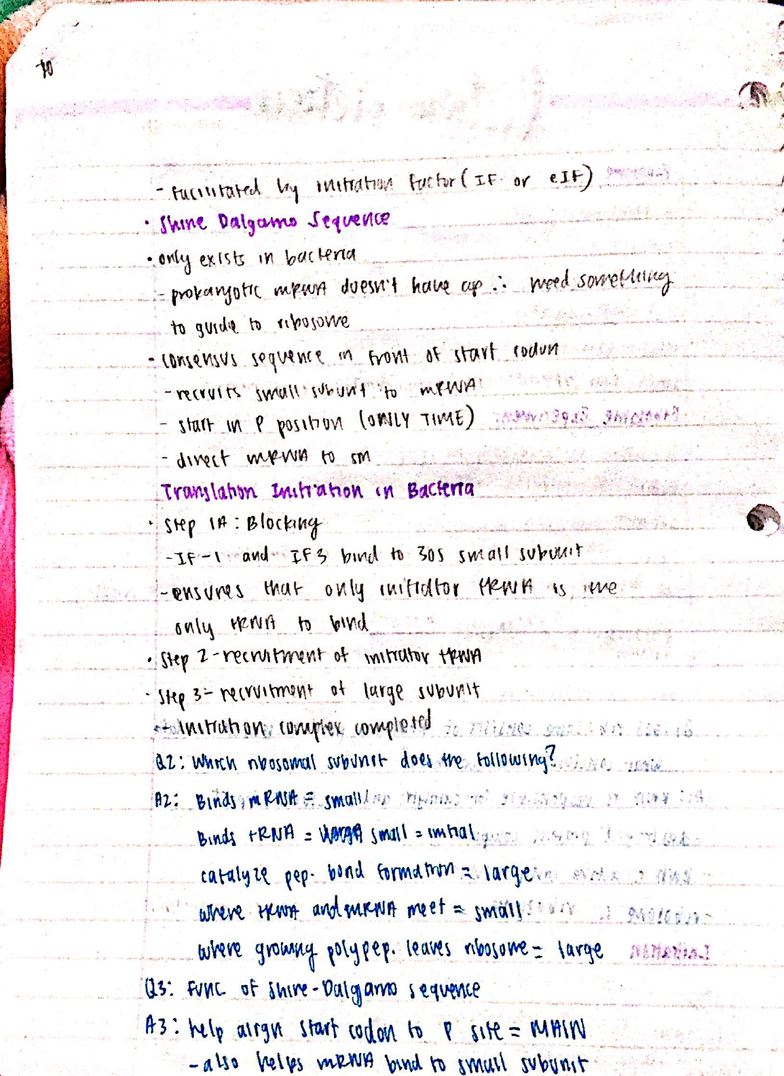 10
- facilitated by initiation factor (IF or eIF)
• Shine Dalgarno Sequence
• only exists in bacteria
- prokaryotic mRNA doesn't have cap ∴ need something
to guide to ribosome
- consensus sequence in front of start codon
- recruits small subunit to mRNA
- start in P position (ONLY TIME)
- direct mRNA to sm
Translation Initiation in Bacteria
• Step 1A: Blocking
- IF-1 and IF3 bind to 30s small subunit
- ensures that only initiator tRNA is the
only tRNA to bind
• Step 2 - recruitment of initiator tRNA
• Step 3 - recruitment of large subunit
Initiation complex completed
Q2: Which ribosomal subunit does the following?
A2: Binds mRNA = small
Binds tRNA = small = initial
catalyze pep. bond formation = large
where tRNA and mRNA meet = small
where growing polypep. leaves ribosome = large
Q3: Func of Shine-Dalgarno sequence
A3: help align start codon to P site = MAIN
- also helps mRNA bind to small subunit